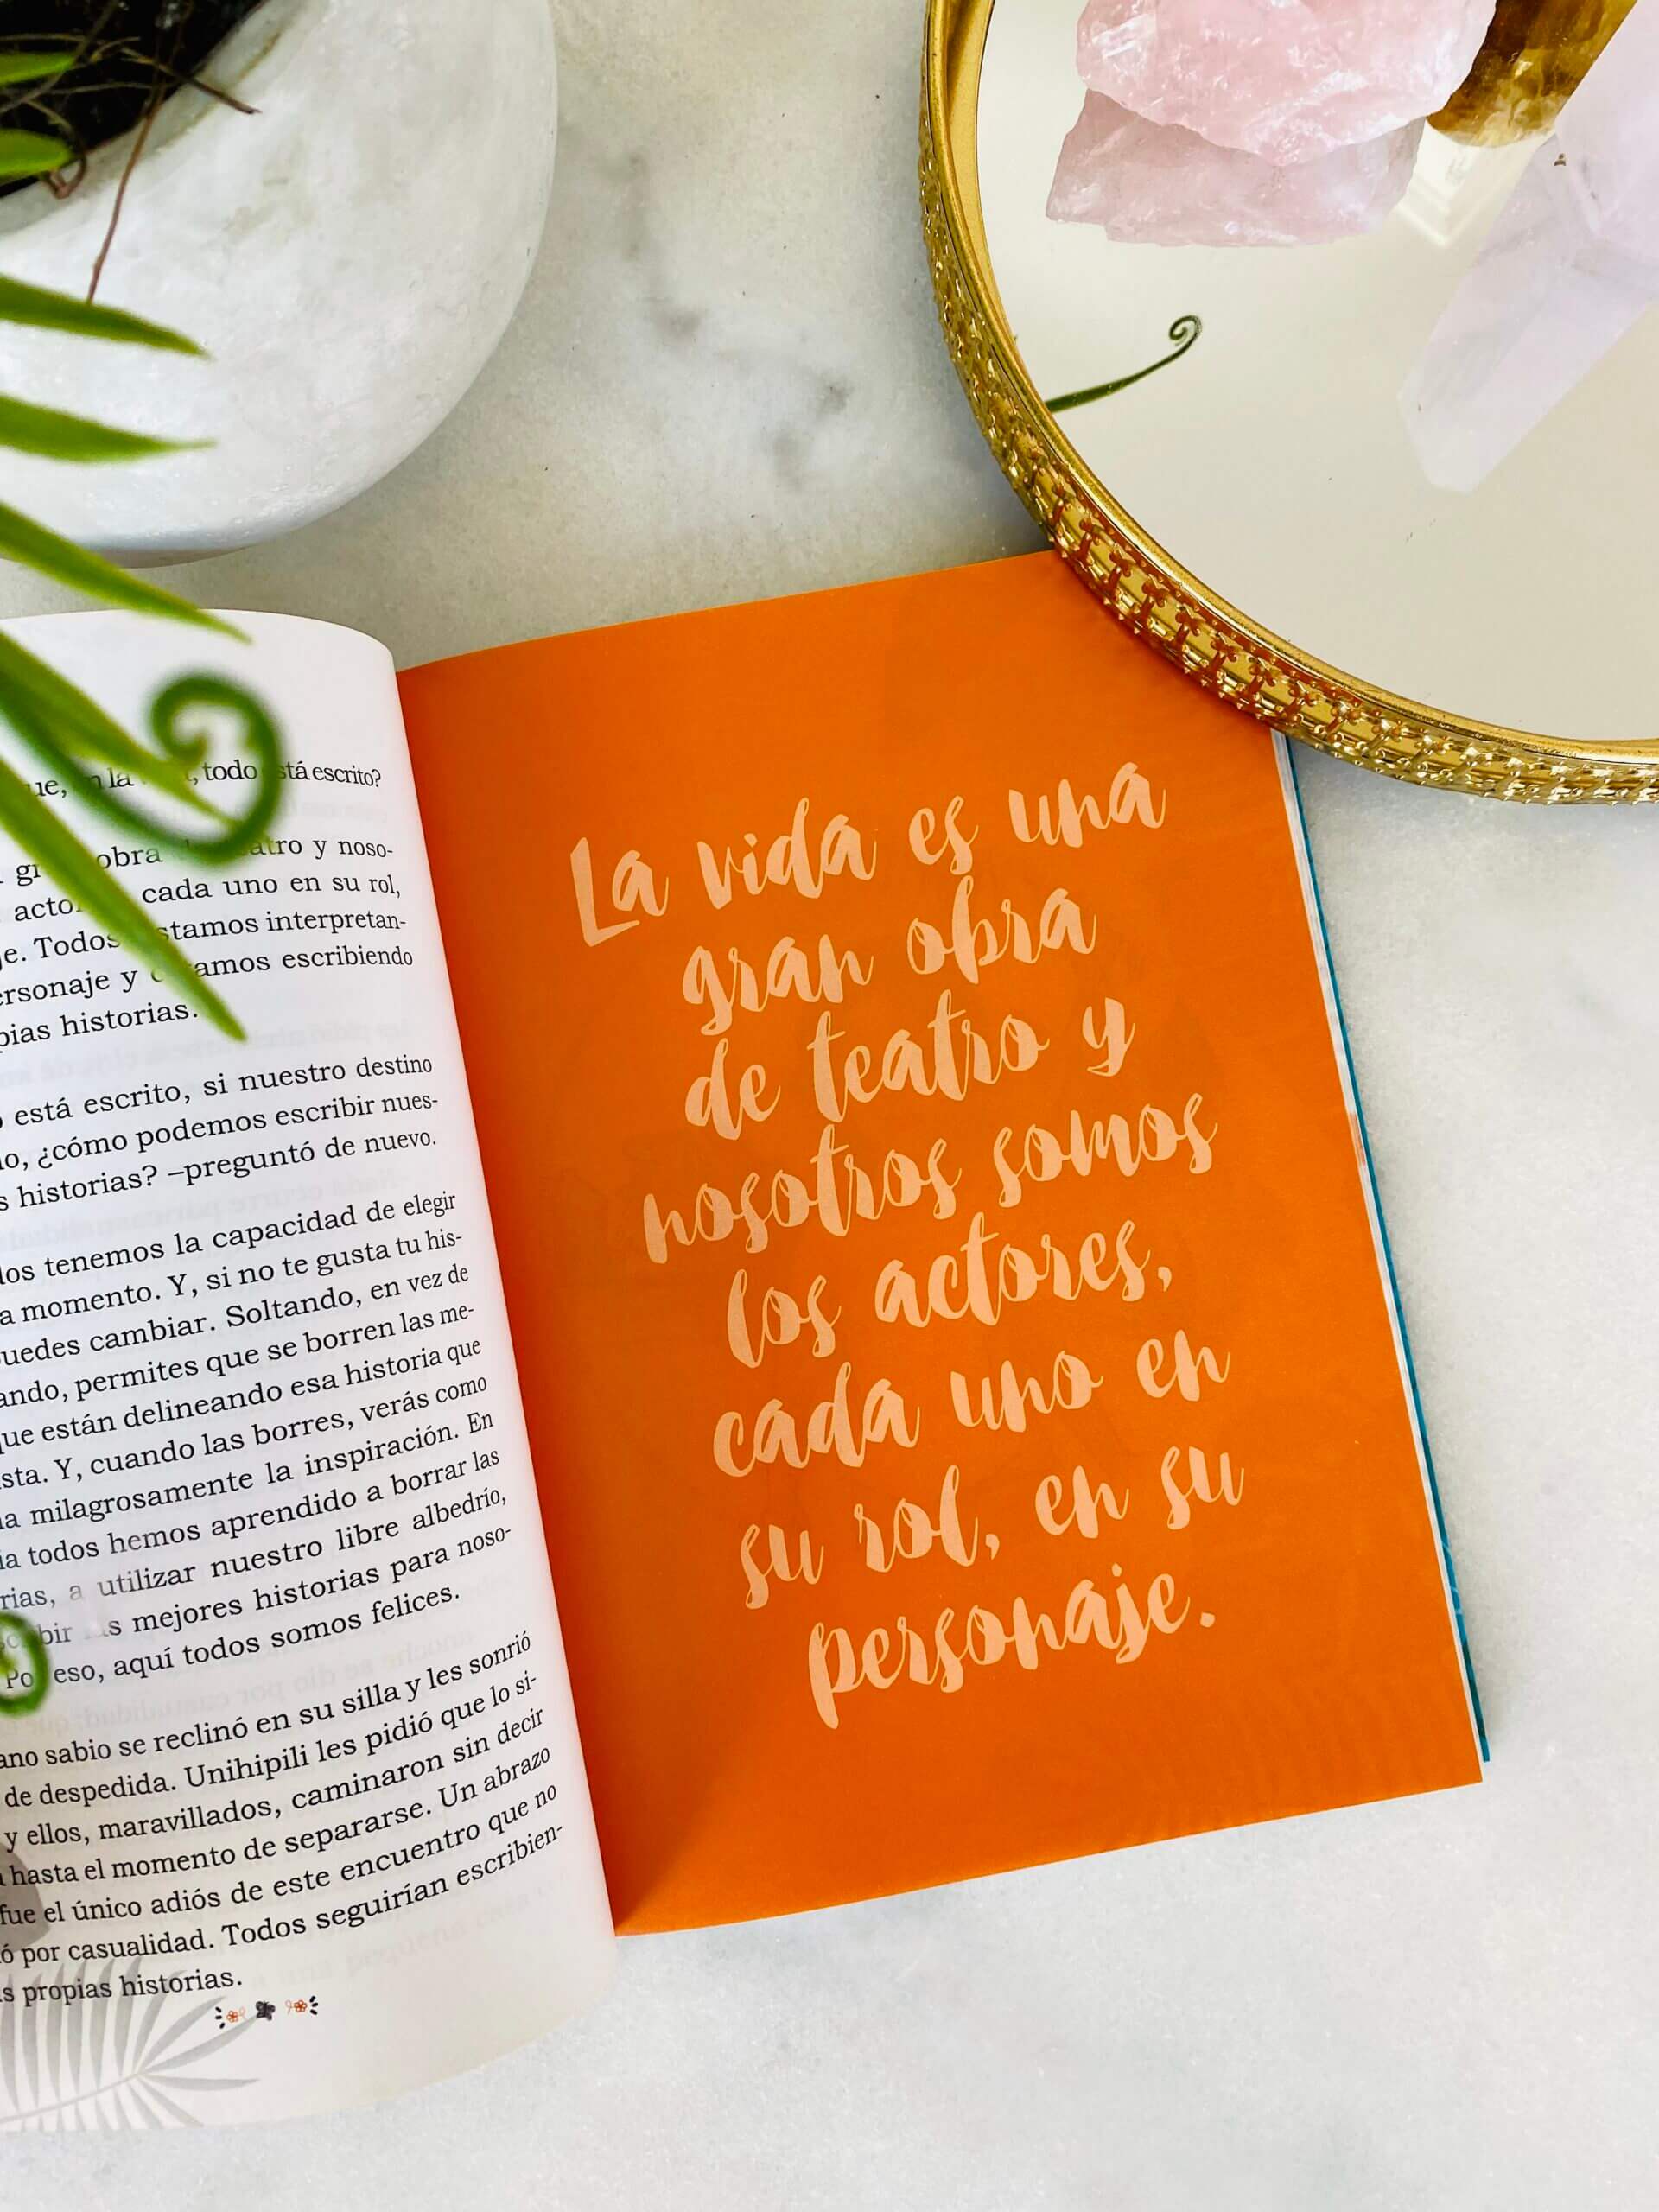 todo
escrito?
obra y noso-
cada uno en su rol,
Todos interpretan-
y escribiendo
historias.
está escrito, si nuestro destino
¿cómo podemos escribir nues-
historias? –preguntó de nuevo.
tenemos la capacidad de elegir
momento. Y, si no te gusta tu his-
cambiar. Soltando, en vez de
permites que se borren las me-
están delineando esa historia que
Y, cuando las borres, verás como
milagrosamente la inspiración. En
todos hemos aprendido a borrar las
a utilizar nuestro libre albedrío,
mejores historias para noso-
eso, aquí todos somos felices.
sabio se reclinó en su silla y les sonrió
de despedida. Unihipili les pidió que lo si-
y ellos, maravillados, caminaron sin decir
hasta el momento de separarse. Un abrazo
fue el único adiós de este encuentro que no
por casualidad. Todos seguirían escribien-
propias historias.
La vida es una
gran obra
de teatro y
nosotros somos
los actores,
cada uno en
su rol, en su
personaje.